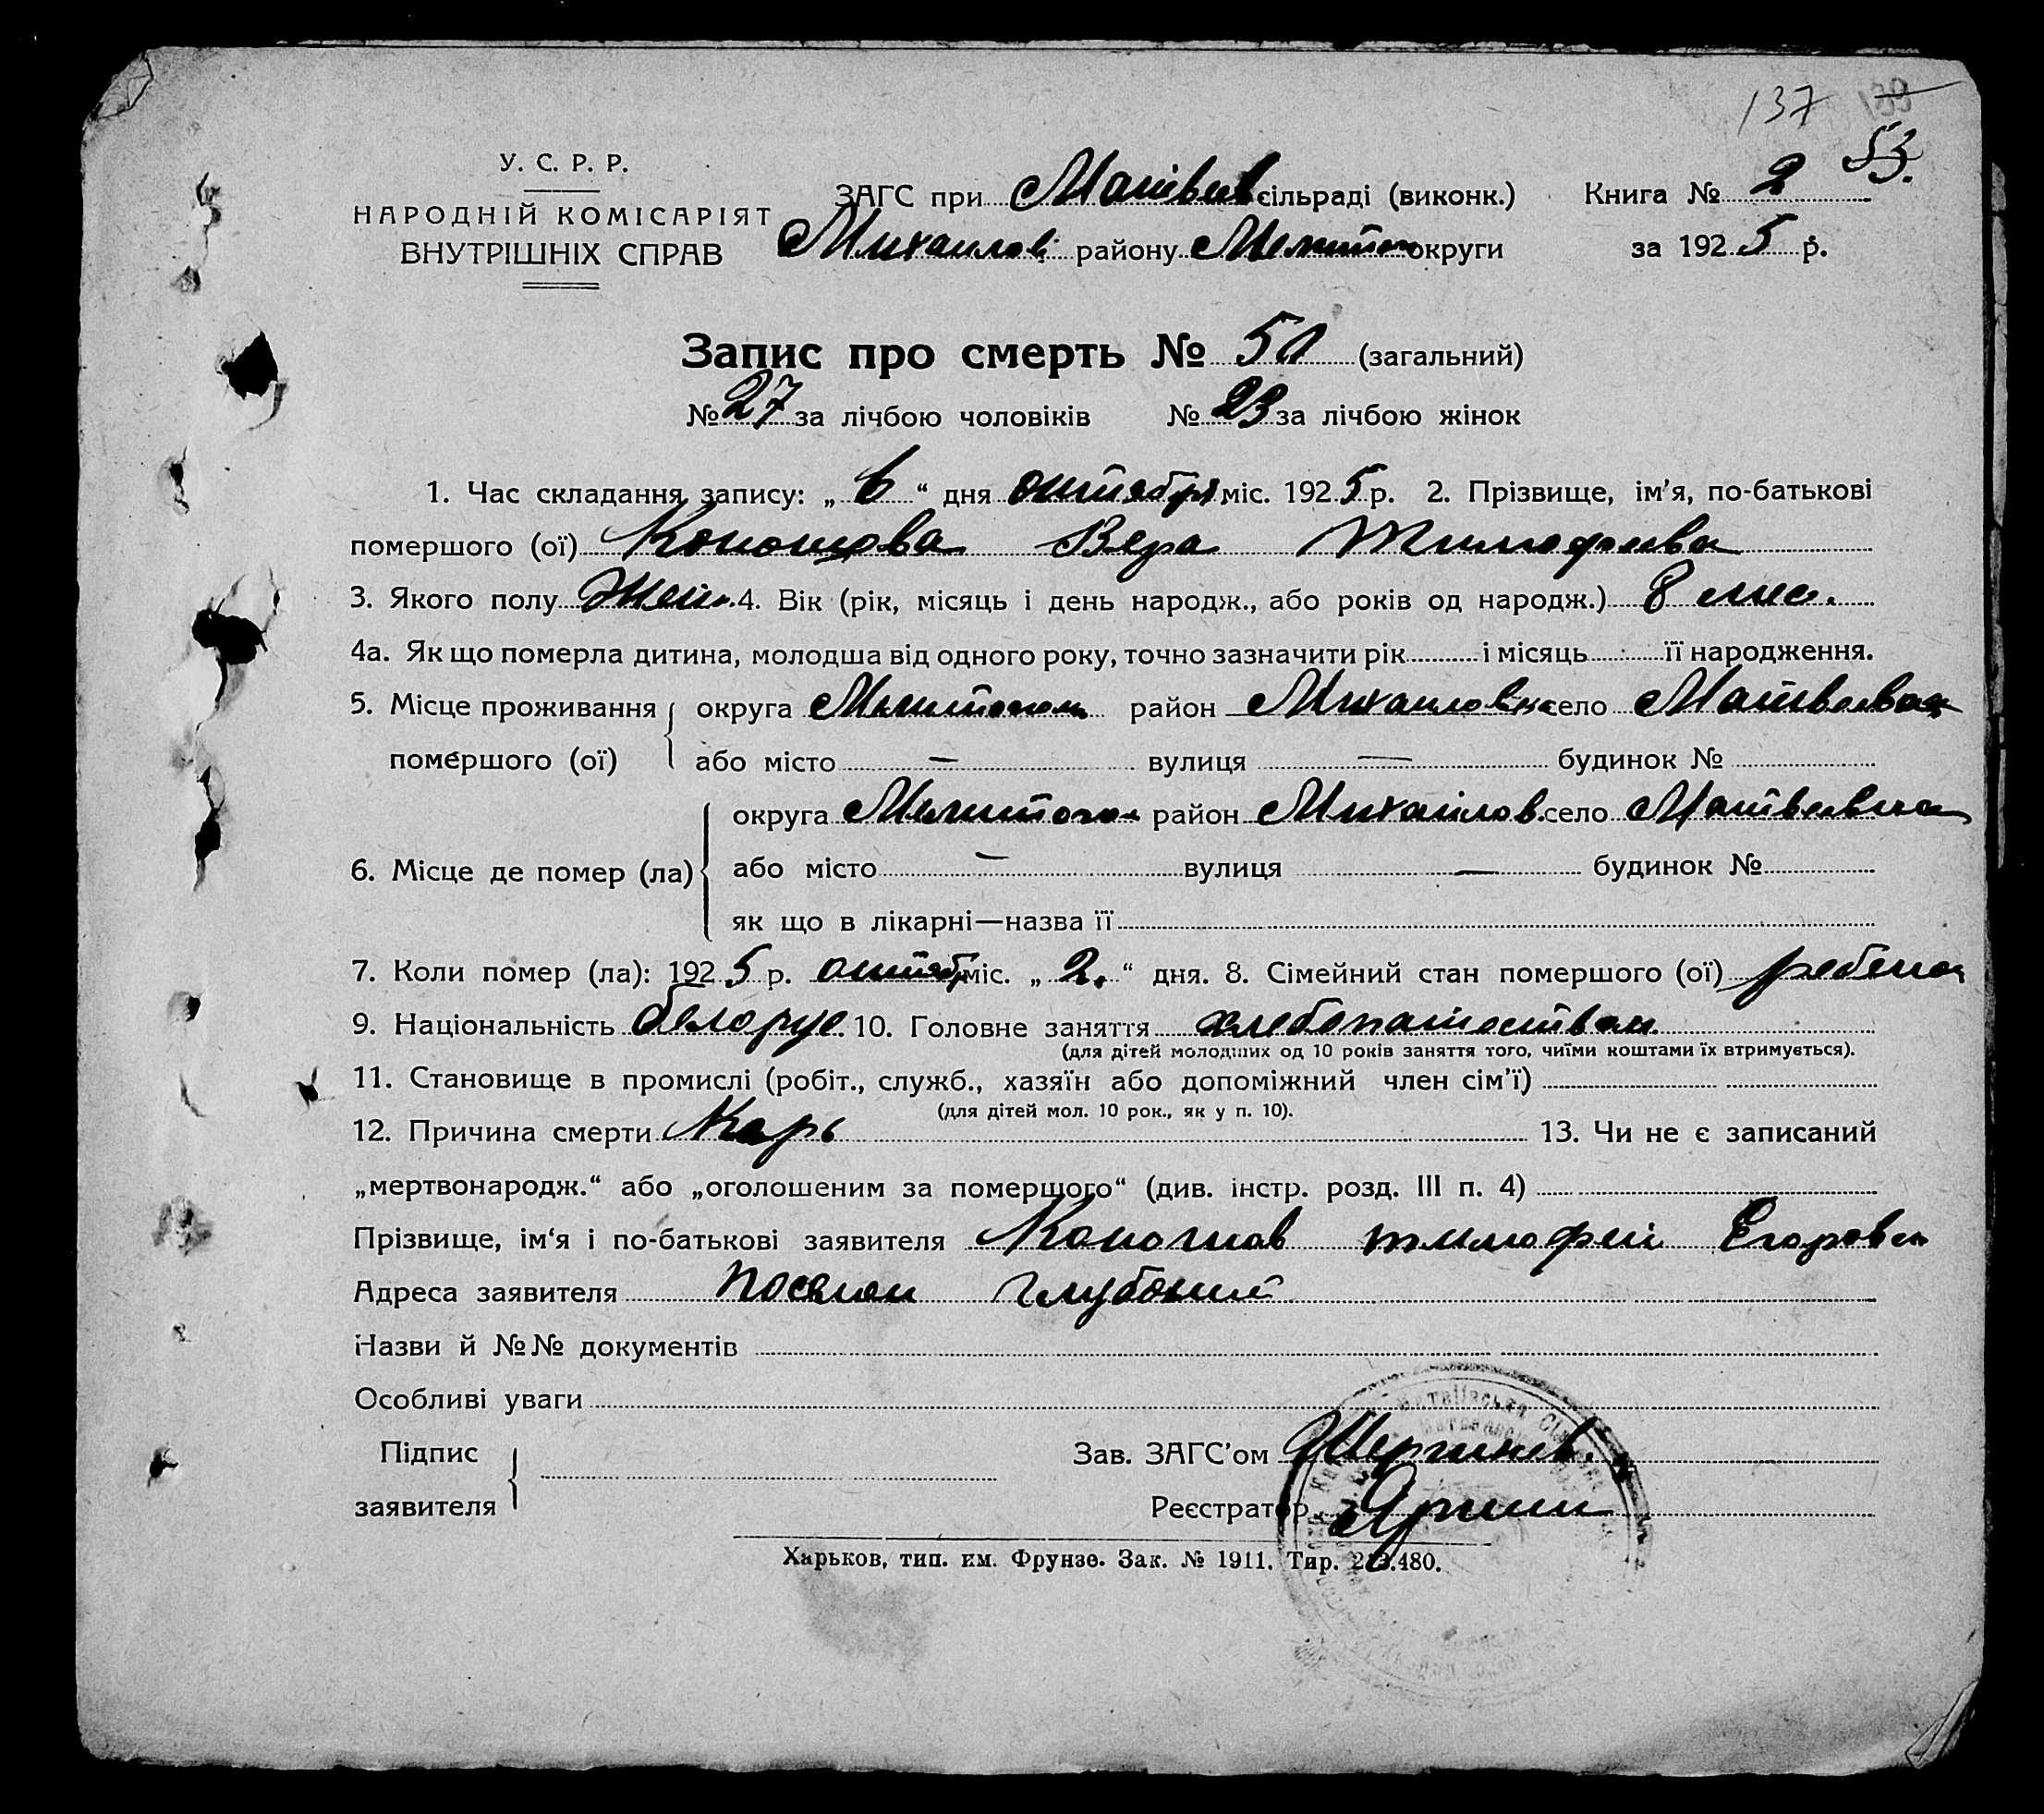 137
53.
У. С. Р. Р.
НАРОДНІЙ КОМІСАРІЯТ
ВНУТРІШНІХ СПРАВ
ЗАГС при Матвеев сільраді (виконк.) Книга № 2
Михаилов району Мелитоп округи за 1925 р.
Запис про смерть № 50 (загальний)
№ 27 за лічбою чоловіків № 23 за лічбою жінок
1. Час складання запису: „ 6 “ дня октября міс. 1925 р. 2. Прізвище, ім’я, по-батькові
помершого (ої) Вера Тимофеева
3. Якого полу Жен. 4. Вік (рік, місяць і день народж., або років од народж.) 8 мес.
4а. Як що померла дитина, молодша від одного року, точно зазначити рік і місяць її народження.
5. Місце проживання округа Мелитопол район Михаиловск село Матвеевка
помершого (ої) або місто — вулиця — будинок №
округа Мелитопол район Михайлов. село Матвеевка
6. Місце де помер (ла) або місто — вулиця — будинок №
як що в лікарні—назва її
7. Коли помер (ла): 1925 р. октяб міс. „ 2. “ дня. 8. Сімейний стан помершого (ої) ребенок
9. Національність белорус. 10. Головне заняття хлебопашеством
(для дітей молодших од 10 років заняття того, чиїми коштами їх втримується).
11. Становище в промислі (робіт., служб., хазяїн або допоміжний член сім’ї)
(для дітей мол. 10 рок., як у п. 10).
12. Причина смерти Корь 13. Чи не є записаний
„мертвонародж.“ або „оголошеним за помершого“ (див. інстр. розд. III п. 4)
Прізвище, ім‘я і по-батькові заявителя тимофей Егоров
Адреса заявителя поселок глубокий
Назви й №№ документів
Особливі уваги
Підпис Зав. ЗАГС’ом
заявителя Реєстратор
Харьков, тип. им. Фрунзе. Зак. № 1911. Тир. 213.480.